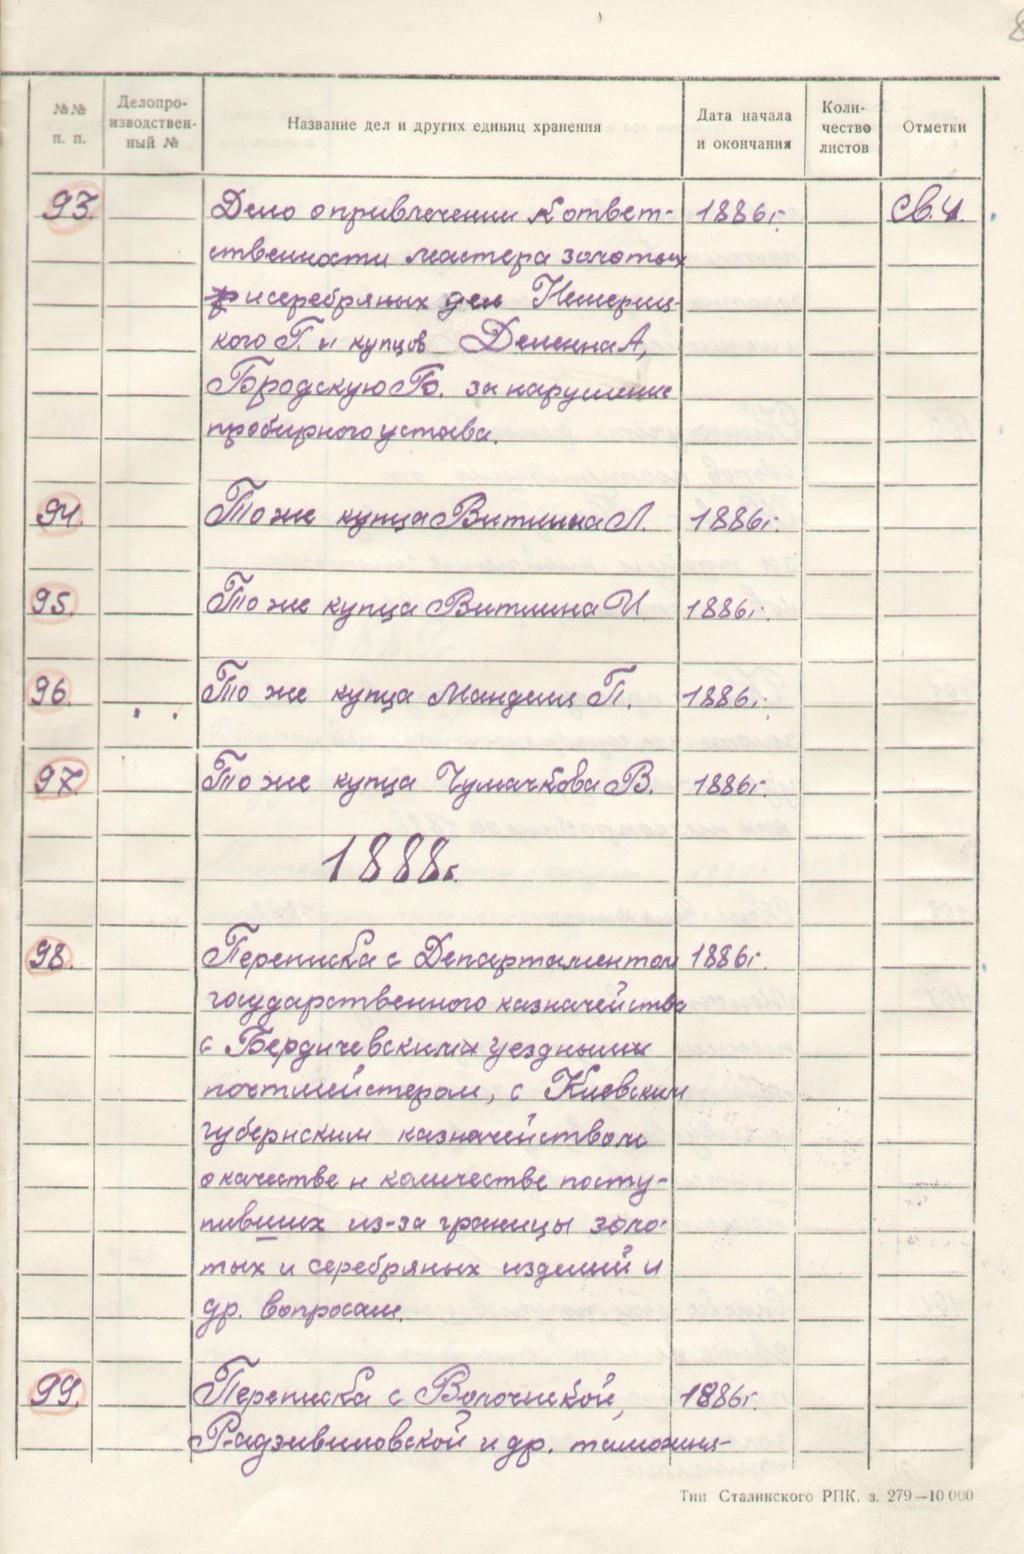 8
№№ п. п.
Делопро-изводствен-ный №
Название дел и других единиц хранения
Дата начала и окончания
Коли-чество листов
Отметки
93. Дело о привлечении к ответ- 1886г. св. 4
ственности мастера золотых
и серебряных дел
кого Г. и купцов А,
Бродскую Б. за нарушение
пробирного устава.
94. То же купца Витлина Л. 1886г.
95. То же купца Витлина И. 1886г.
96. То же купца П. 1886г.
97. То же купца Чумачкова В. 1886г.
1888г.
98. Переписка с Департаментом 1886г.
государственного казначейства
с Бердичевскими уездными
почтмейстером, с Киевским
губернским казначейством
о качестве и количестве посту-
пивших из-за границы золо-
тых и серебряных изделий и
др. вопросам.
99. Переписка с Волочиской, 1886г.
Радзивиловской и др. таможня-
Тип Сталинского РПК. з. 279—10 000